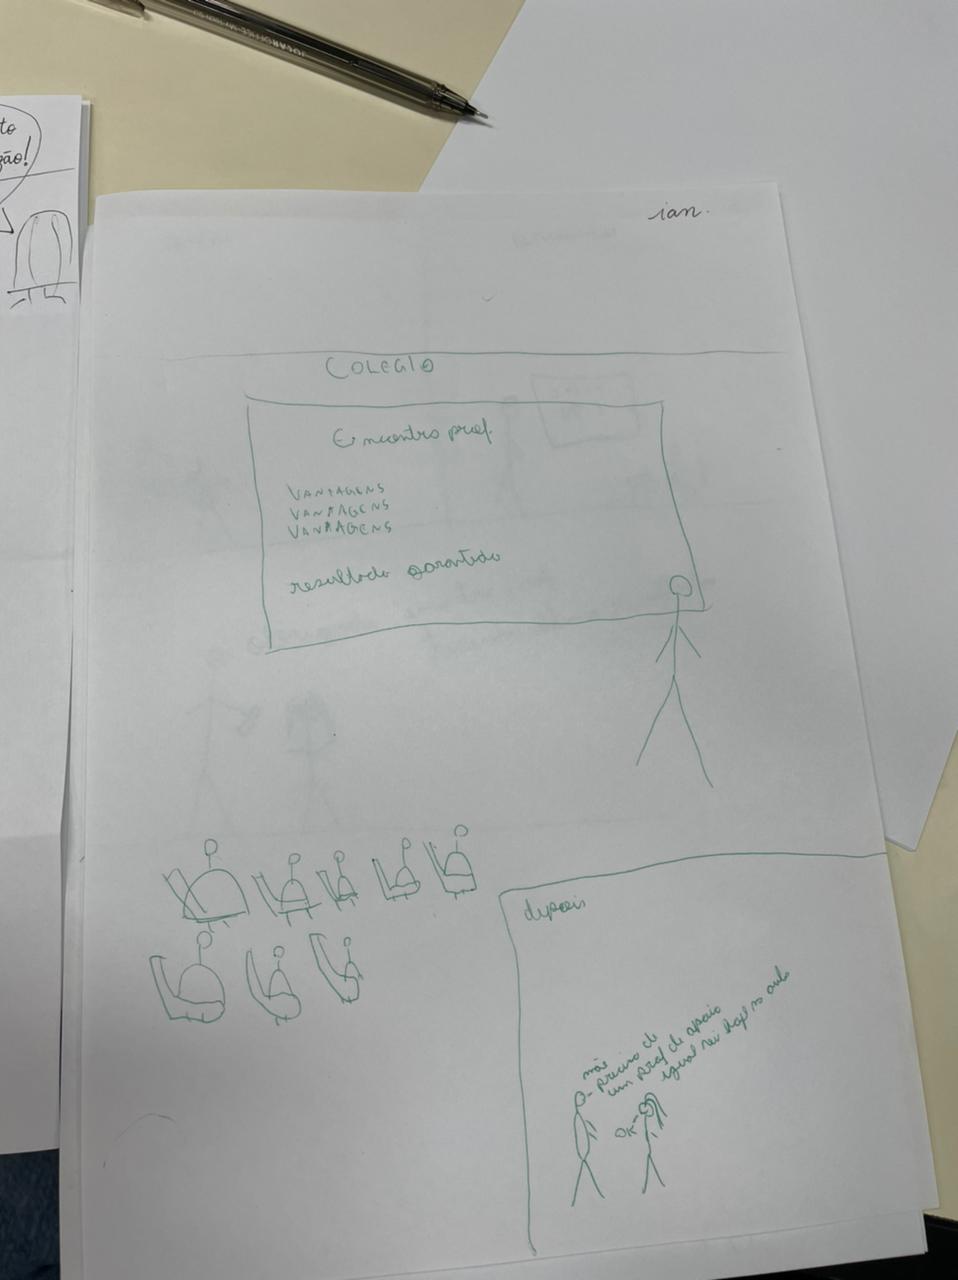 to
ção!
ian.
COLEGIO
Encontro prof.
VANTAGENS
VANTAGENS
VANTAGENS
resultado garantido
depois
mãe
- preciso de
um prof de apoio
igual vi hoje na aula
OK -